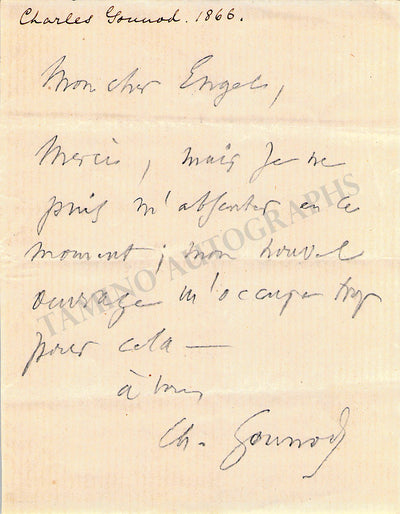 Charles Gounod. 1866.
Mon cher Engel,
Merci, mais je ne
puis m'absenter en ce
moment ; mon nouvel
ouvrage m'occupe trop
pour cela —
à vous
Ch. Gounod
TAMINO AUTOGRAPHS